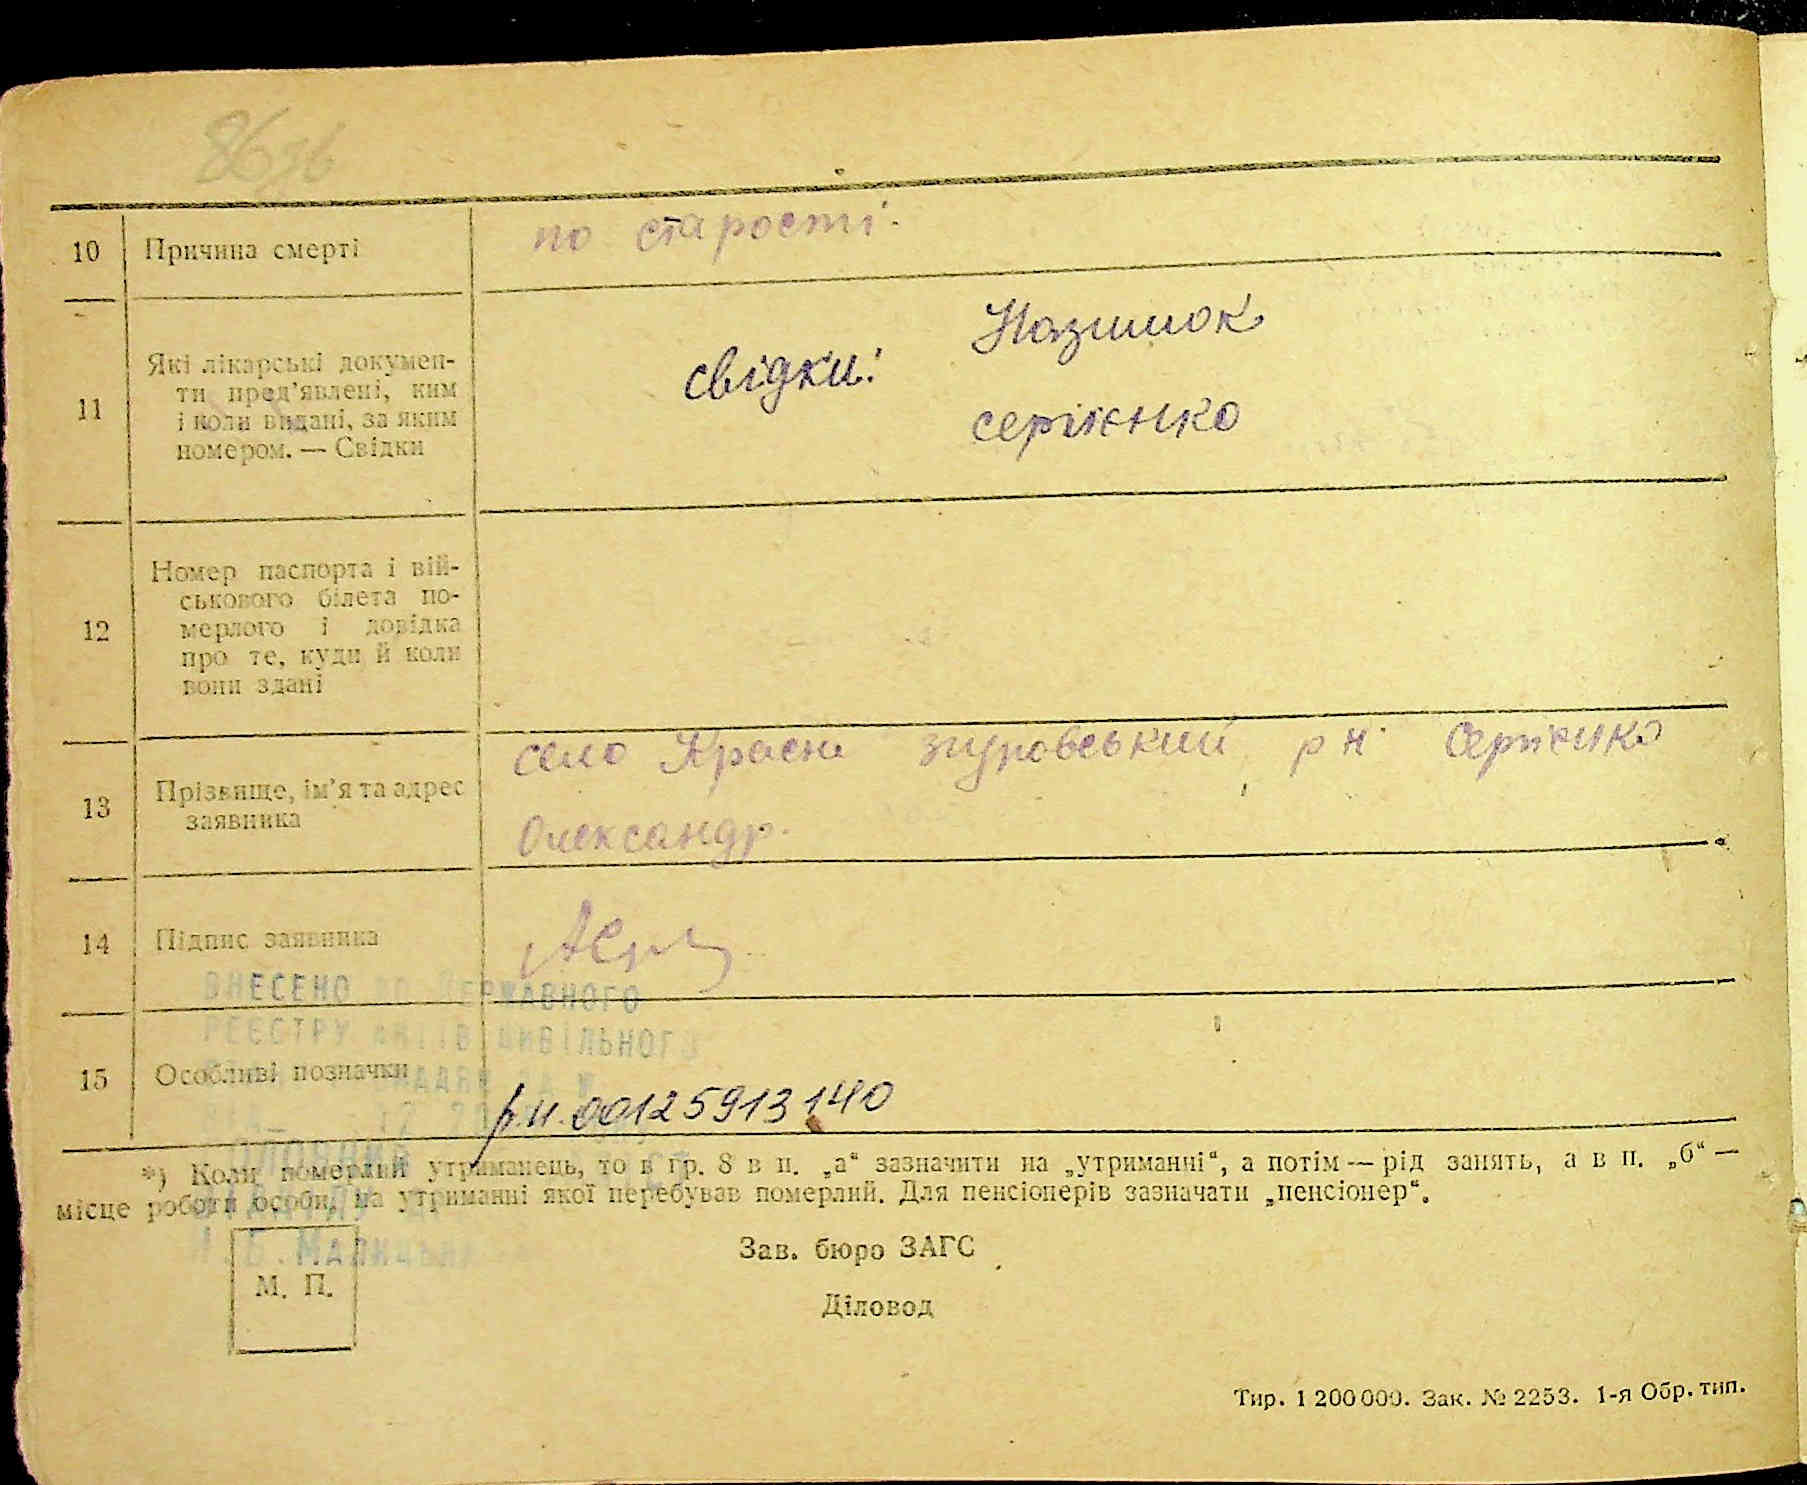 86 зв
10 Причина смерті по старості.
11 Які лікарські докумен-
ти пред'явлені, ким
і коли видані, за яким
номером. — Свідки
свідки: Назимок
сергієнко
12 Номер паспорта і вій-
ськового білета по-
мерлого і довідка
про те, куди й коли
вони здані
13 Прізвище, ім'я та адрес
заявника
село Красне згуровський р н Сергієнко
Олександр.
14 Підпис заявника
ВНЕСЕНО ДО ДЕРЖАВНОГО
РЕЄСТРУ АКТІВ ЦИВІЛЬНОГО
15 Особливі позначки
р.н. 00125913140
*) Коли померлий утриманець, то в гр. 8 в п. „а“ зазначити на „утриманні“, а потім — рід занять, а в п. „б“ —
місце роботи особи, на утриманні якої перебував померлий. Для пенсіонерів зазначати „пенсіонер“.
М. П.
Зав. бюро ЗАГС
Діловод
Тир. 1 200 000. Зак. № 2253. 1-я Обр. тип.